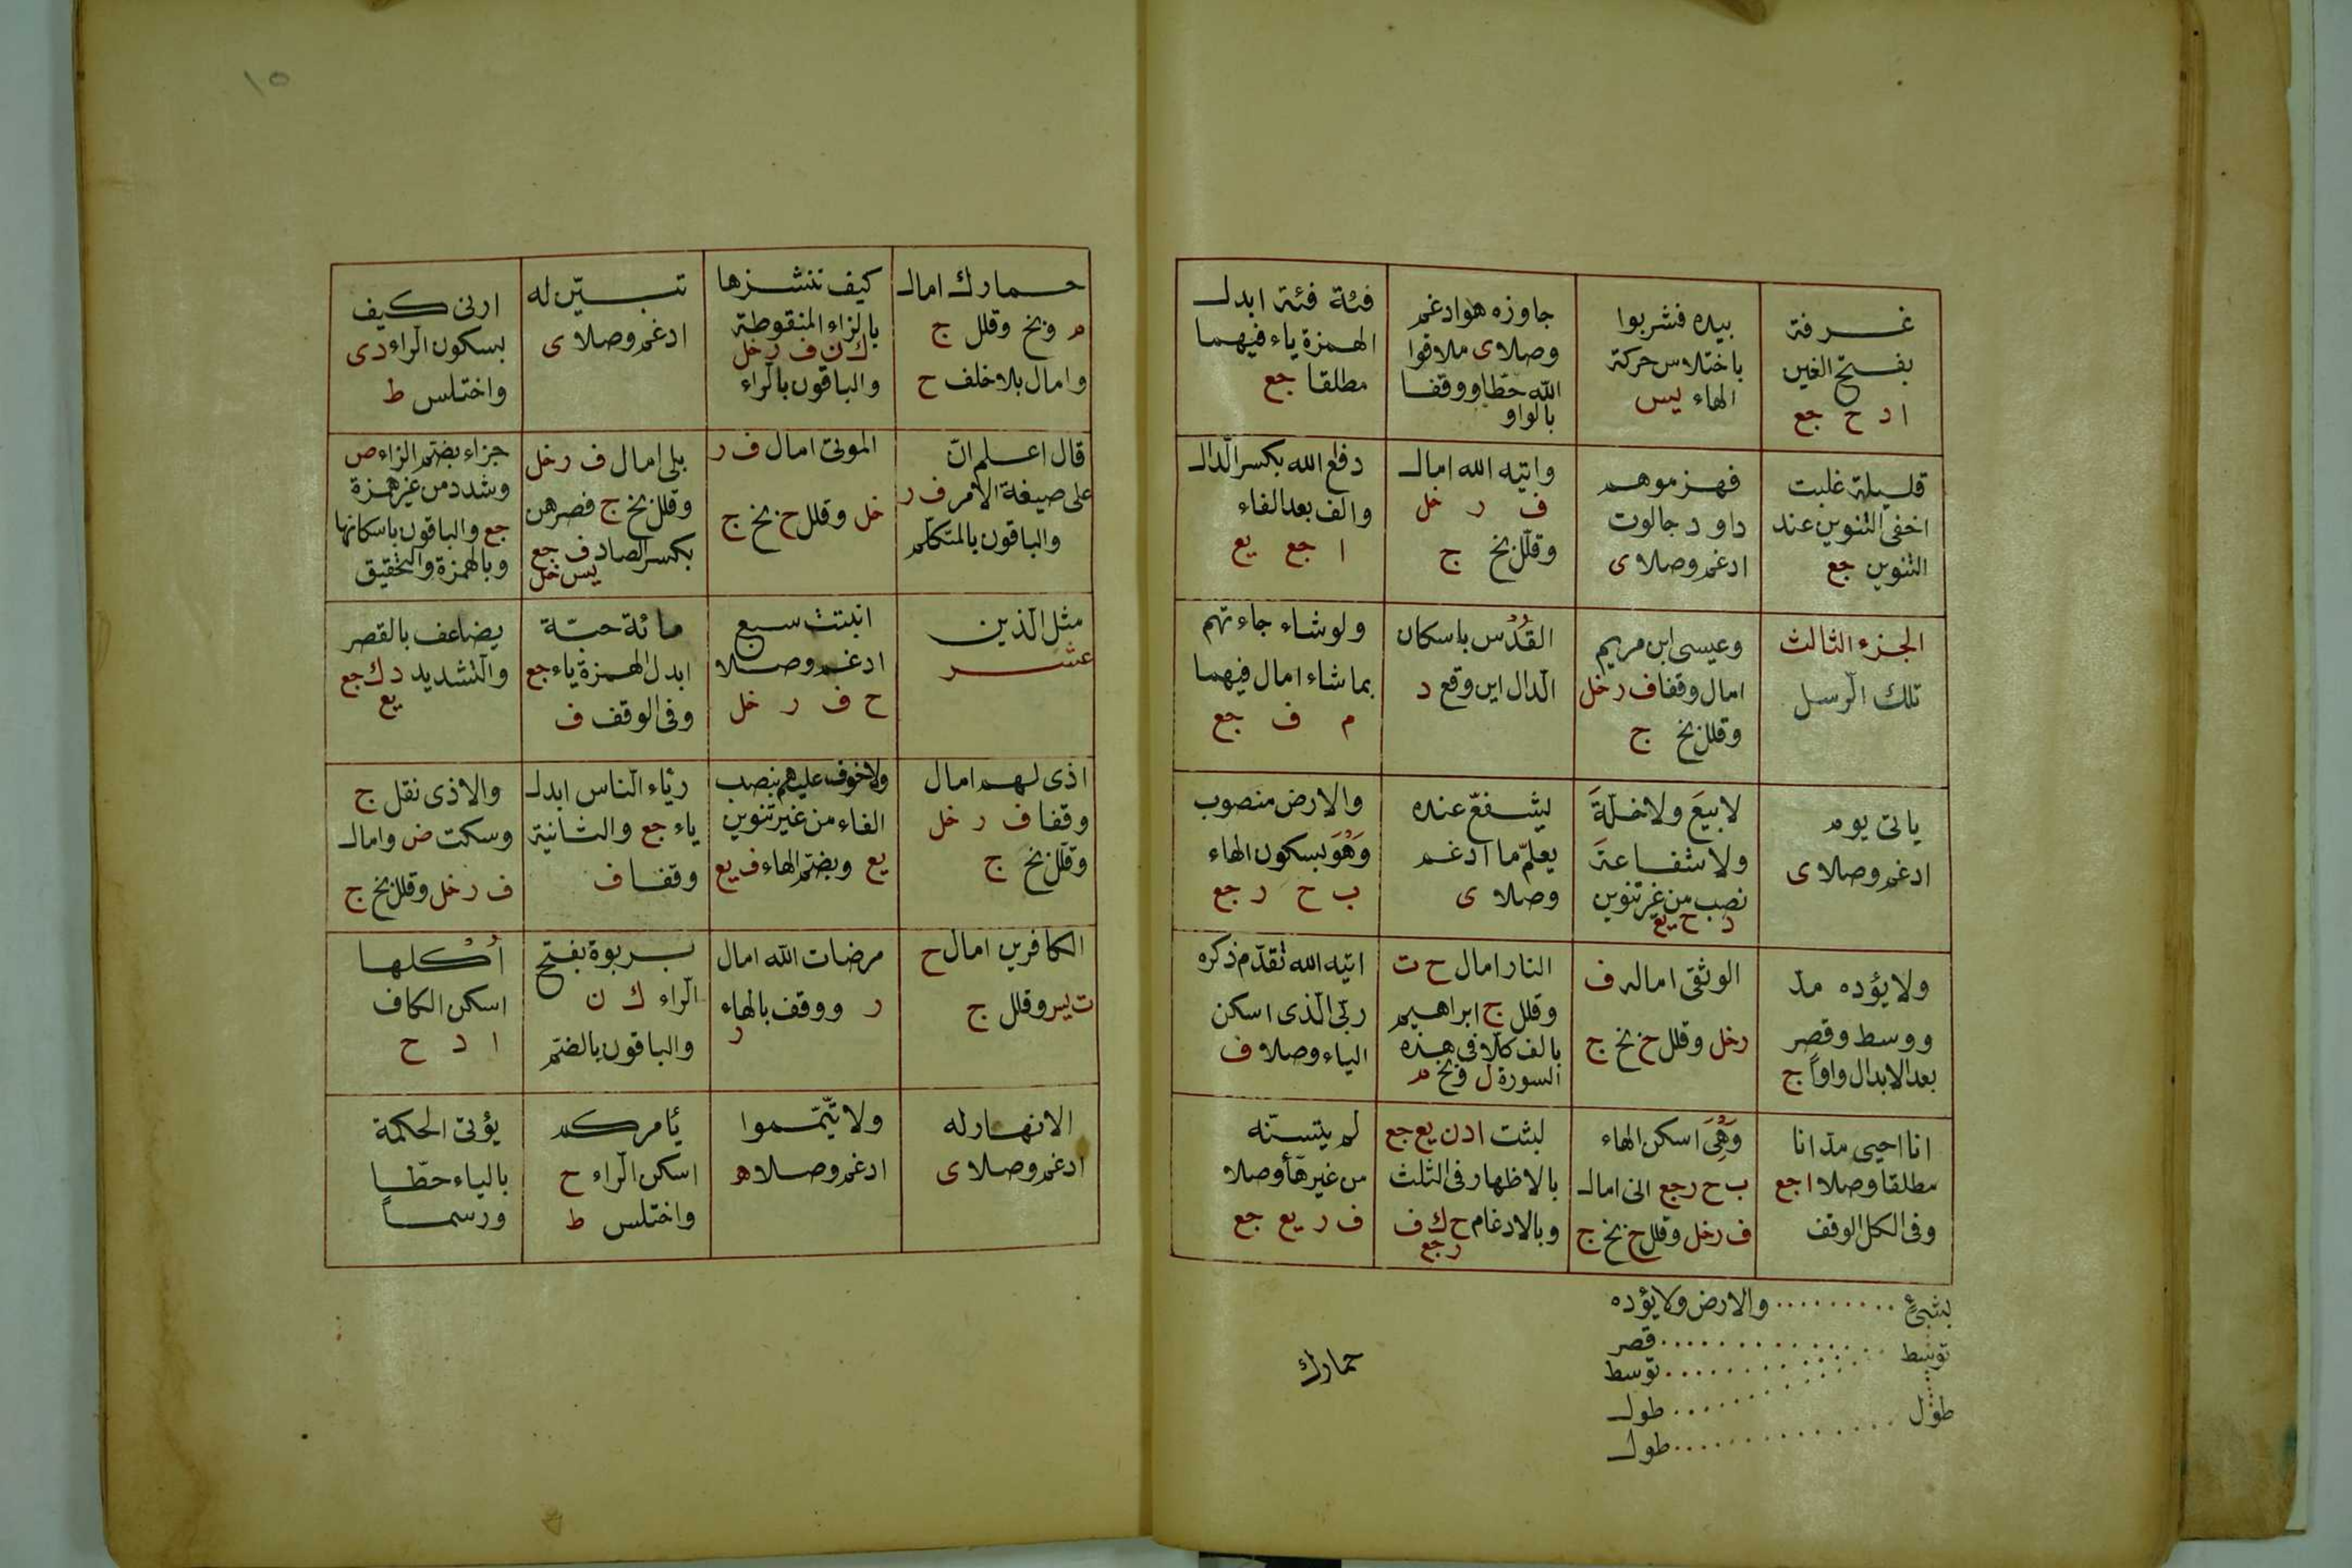 غرفة
بفتح الغين
ا د ح جع
بيده فشربوا
باختلاس حركة
الهاء يس
جاوزه هو ادغم
وصلا ى ملاقوا
الله حطا ووقفا
بالواو
فئة فئة ابدل
الهمزة ياء فيهما
مطلقا جع
قليلة غلبت
اخفى التنوين عند
التنوين جع
فهزموهم
داود جالوت
ادغم وصلا ى
واتيه الله امال
ف ر خل
وقلل بخ ج
دفع الله بكسر الدال
والف بعد الفاء
ا جع يع
الجزء الثالث
تلك الرسل
وعيسى ابن مريم
امال وقفا ف ر خل
وقلل بخ ج
القدس باسكان
الدال اين وقع د
ولو شاء جاءتهم
بما شاء امال فيهما
م ف جع
ياتى يوم
ادغم وصلا ى
لا بيع ولا خلة
ولا شفاعة
نصب من غير تنوين
د ح يع
يشفع عنده
يعلم ما ادغم
وصلا ى
والارض منصوب
وهو بسكون الهاء
ب ح ر جع
ولا يؤده مد
ووسط وقصر
بعد الابدال واوا ج
الوثقى اماله ف
ر خل وقلل ح بخ ج
النار امال ح ت
وقلل ج ابراهيم
بالف كلا فى هذه
السورة ل وبخ م
اتيه الله تقدم ذكره
ربى الذى اسكن
الياء وصلا ف
انا احيى مد انا
مطلقا وصلا ا جع
وفى الكل الوقف
وهى اسكن الهاء
ب ح ر جع انى امال
ف ر خل وقلل ح بخ ج
لبثت ا د ن يع جع
بالاظهار فى الثلث
وبالادغام ح ك ف
ر جع
لم يتسنه
من غير هأ وصلا
ف ر يع جع
بشئ ......... والارض ولا يؤده
توسط ............. قصر
............ توسط
............ طول
طول ............. طول
حمارك
١٥
حمارك امال
م وبخ وقلل ج
وامال بلا خلف ح
كيف ننشزها
بالزاء المنقوطة
ك ن ف ر خل
والباقون بالراء
تبين له
ادغم وصلا ى
ارنى كيف
بسكون الراء د ى
واختلس ط
قال اعلم ان
على صيغة الامر ف ر
والباقون بالمتكلم
الموتى امال ف ر
خل وقلل ح بخ ج
بلى امال ف ر خل
وقلل بخ ج فصرهن
بكسر الصاد ف جع
يس خل
جزاء بضم الزاء ص
وشدد من غير همزة
جع والباقون باسكانها
وبالهمزة والتحقيق
مثل الذين
عشر
انبتت سبع
ادغم وصلا
ح ف ر خل
مائة حبة
ابدل الهمزة ياء جع
وفى الوقف ف
يضاعف بالقصر
والتشديد د ك جع
يع
اذى لهم امال
وقفا ف ر خل
وقلل بخ ج
ولا خوف عليهم بنصب
الفاء من غير تنوين
يع وبضم الهاء ف يع
رئاء الناس ابدل
ياء جع والثانية
وقفا ف
والاذى نقل ج
وسكت ض وامال
ف ر خل وقلل بخ ج
الكافرين امال ح
ت يس وقلل ج
مرضات الله امال
ر ووقف بالهاء
ر
بربوة بفتح
الراء ك ن
والباقون بالضم
أكلها
اسكن الكاف
ا د ح
الانهار له
ادغم وصلا ى
ولا تيمموا
ادغم وصلا ه
يأمركم
اسكن الراء ح
واختلس ط
يؤتى الحكمة
بالياء حطا
ورسما